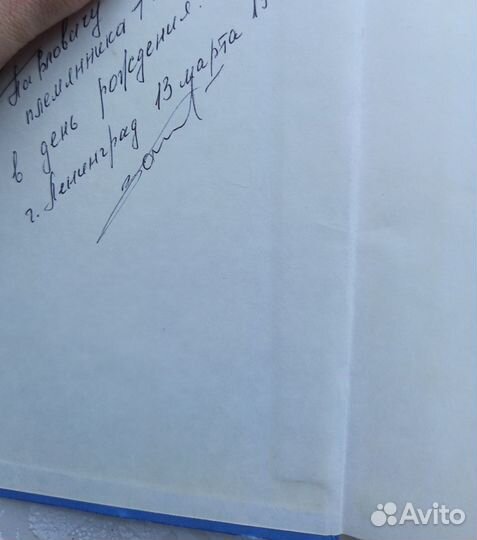 Павловичу
племянника
в день рождения.
г. Ленинград 13 марта
Avito